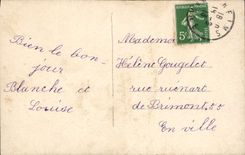 Bien le bon-
jour
Blanche et
Louise
Mademoi
Hélène Gougelet
rue ruinart
de Brimont
En ville
5